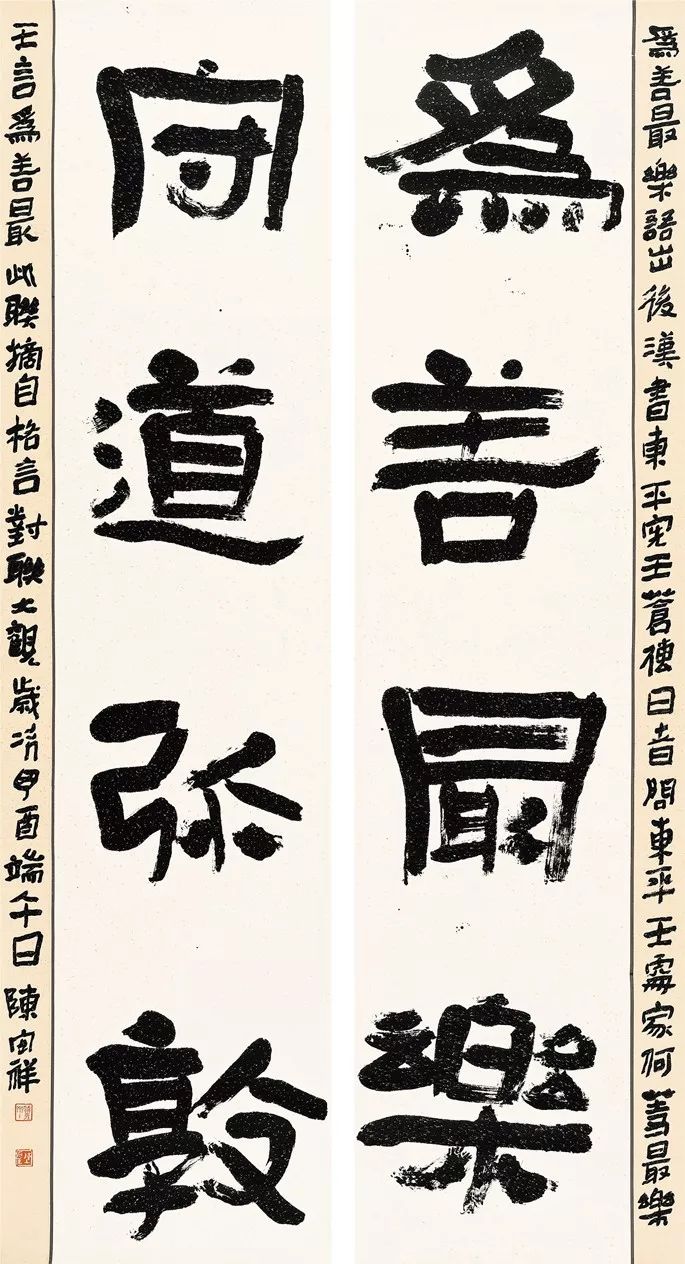 為善最樂語出後漢書東平宪王蒼傳日者問東平王處家何等最樂
為善最樂
守道弥敦
王言為善最此聯摘自格言對聯大觀歲次甲酉端午日陳祥